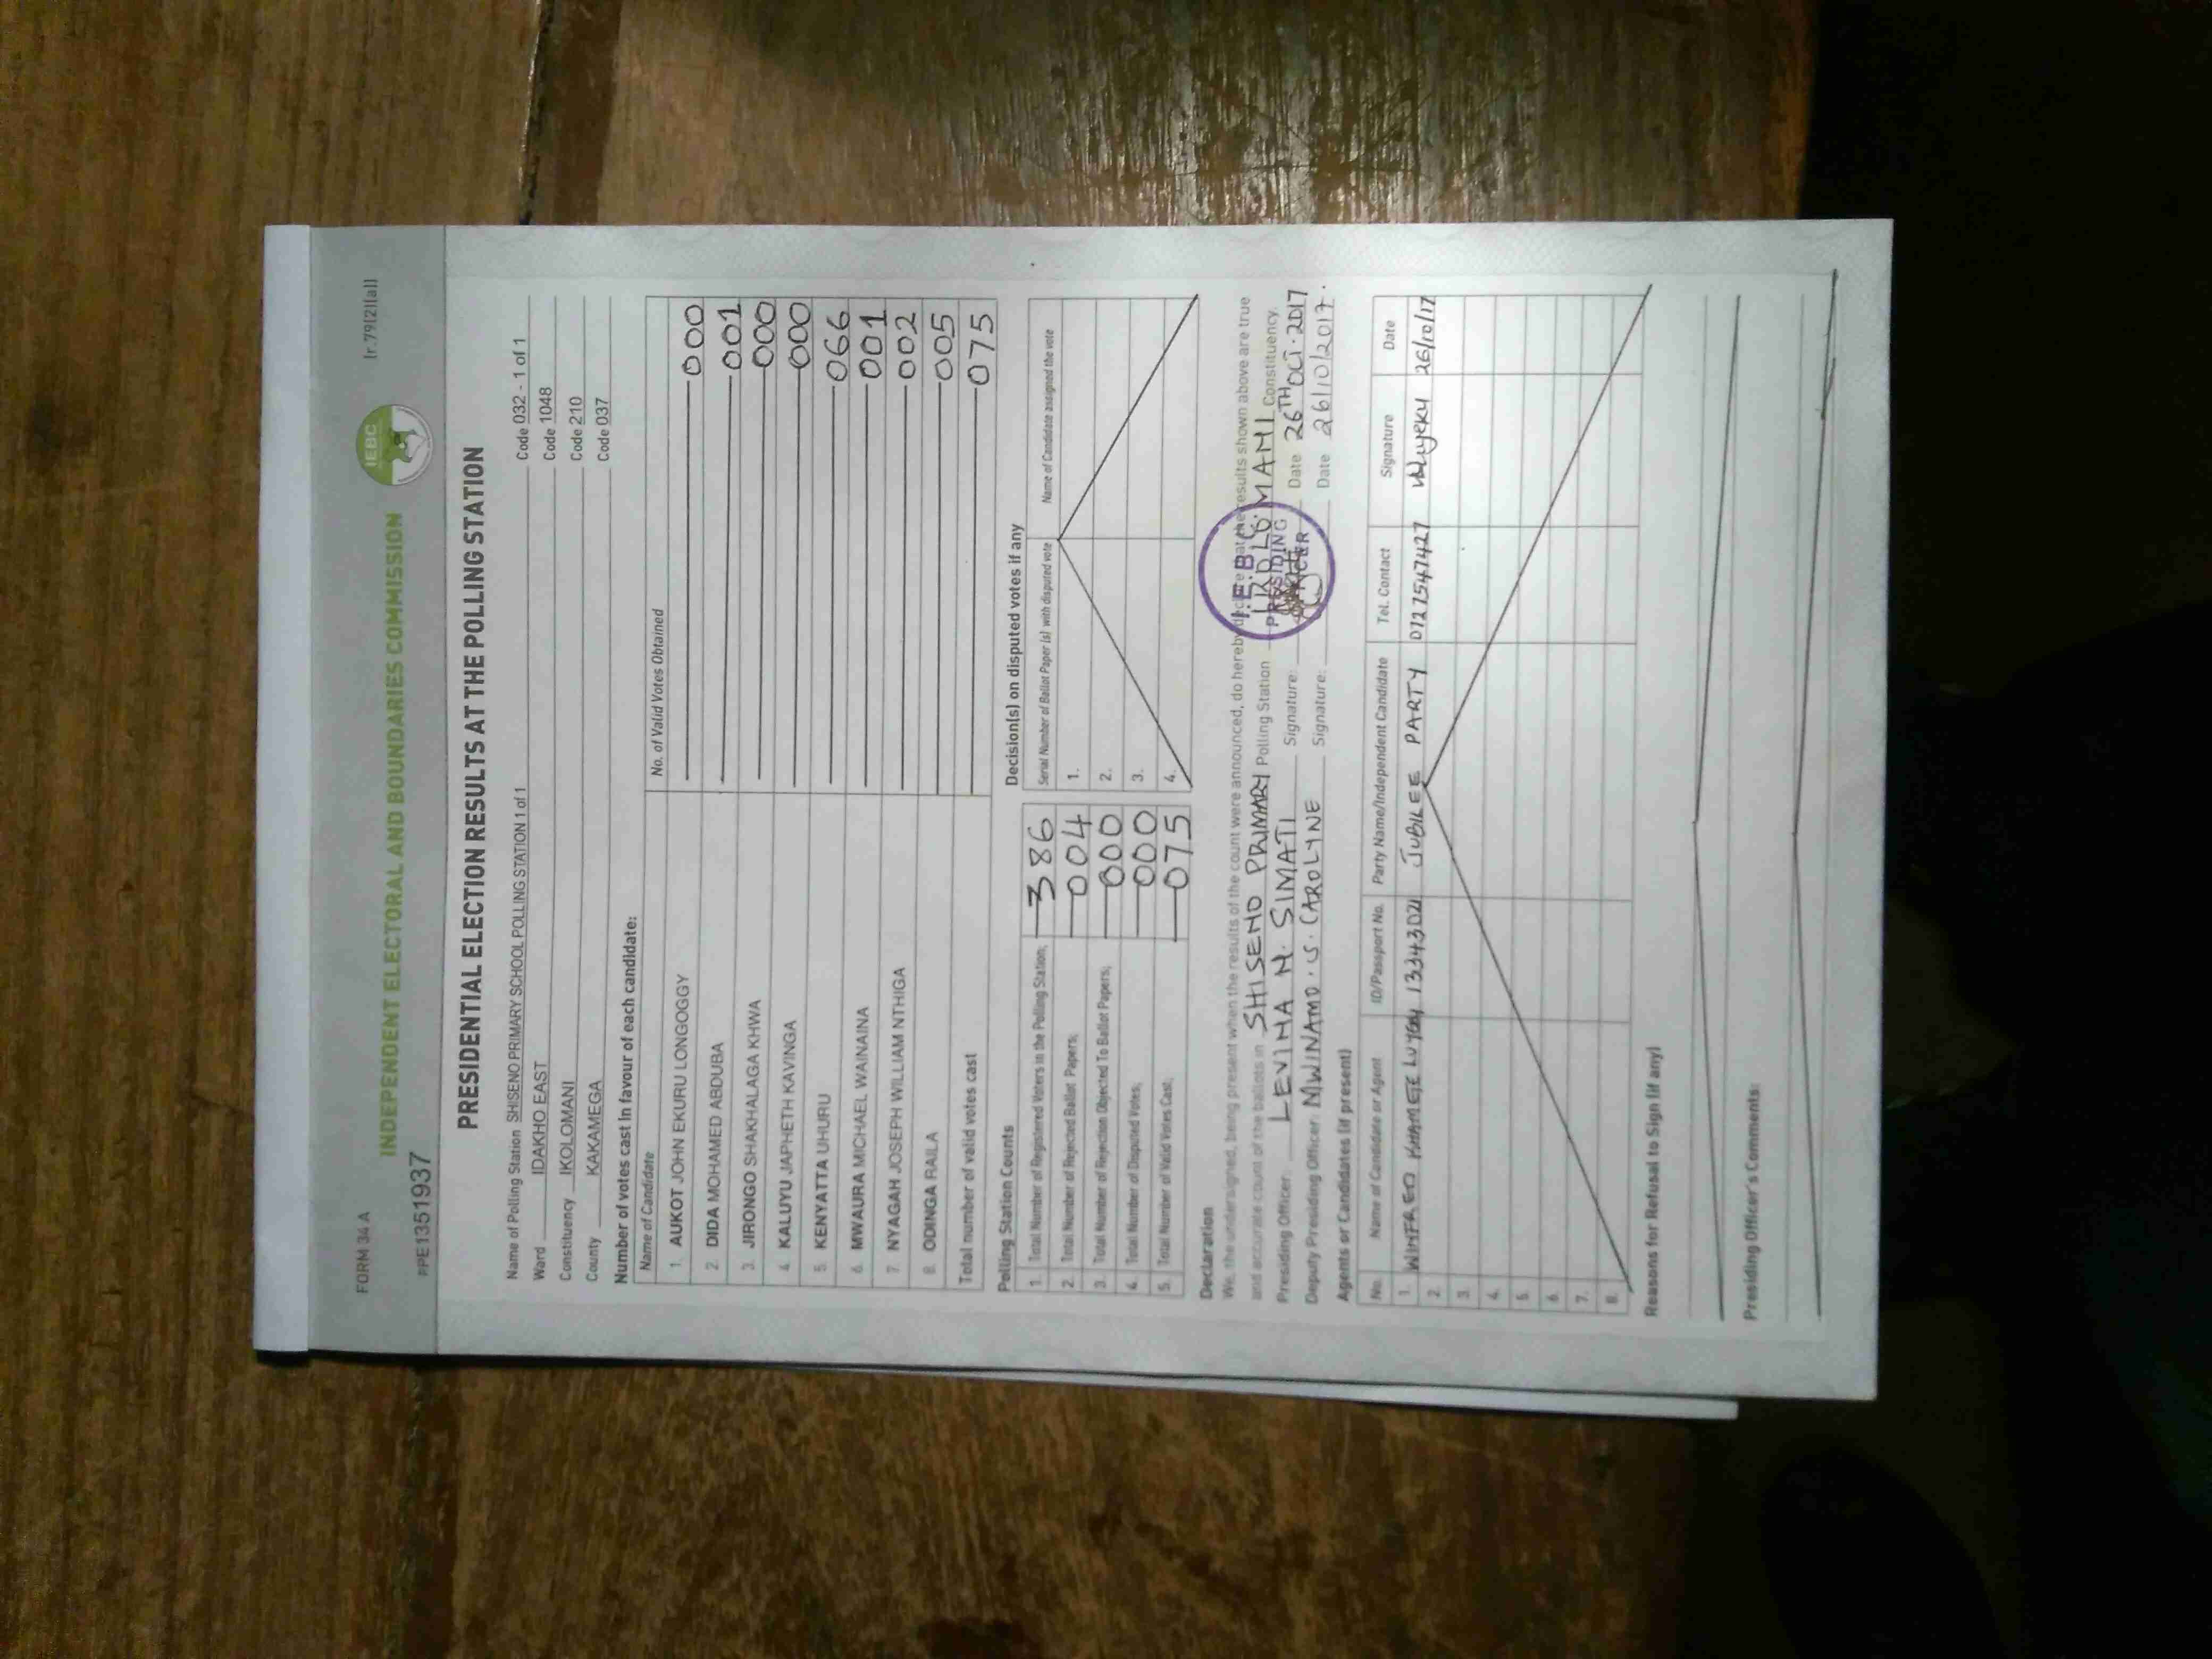 FORM 34 A
(r.79(2)(a))
IEBC
INDEPENDENT ELECTORAL AND BOUNDARIES COMMISSION
PPE1351937
PRESIDENTIAL ELECTION RESULTS AT THE POLLING STATION
Name of Polling Station SHISENO PRIMARY SCHOOL POLLING STATION 1 of 1 Code 032 - 1 of 1
Ward IDAKHO EAST Code 1048
Constituency IKOLOMANI Code 210
County KAKAMEGA Code 037
Number of votes cast in favour of each candidate:
Name of Candidate No. of Valid Votes Obtained
1. AUKOT JOHN EKURU LONGOGGY 000
2. DIDA MOHAMED ABDUBA 001
3. JIRONGO SHAKHALAGA KHWA 000
4. KALUYU JAPHETH KAVINGA 000
5. KENYATTA UHURU 066
6. MWAURA MICHAEL WAINAINA 001
7. NYAGAH JOSEPH WILLIAM NTHIGA 002
8. ODINGA RAILA 005
Total number of valid votes cast 075
Polling Station Counts
1. Total Number of Registered Voters in the Polling Station; 386
2. Total Number of Rejected Ballot Papers; 004
3. Total Number of Rejection Objected To Ballot Papers; 000
4. Total Number of Disputed Votes; 000
5. Total Number of Valid Votes Cast; 075
Decision(s) on disputed votes if any
Serial Number of Ballot Paper (s) with disputed vote Name of Candidate assigned the vote
1.
2.
3.
4.
Declaration
We, the undersigned, being present when the results of the count were announced, do hereby declare that the results shown above are true
and accurate count of the ballots in SHISENO PRIMARY Polling Station Constituency.
Presiding Officer: LEVINA N. SIMATI Signature: Date 26TH OCT. 2017
Deputy Presiding Officer: MWINAMO. S. CAROLYNE Signature: Date 26/10/2017.
I.E.B.C.
PRESIDING
OFFICER
Agents or Candidates (if present)
No. Name of Candidate or Agent ID/Passport No. Party Name/Independent Candidate Tel. Contact Signature Date
1. WINFRED 13343021 JUBILEE PARTY 0727547427 26/10/17
2.
3.
4.
5.
6.
7.
8.
Reasons for Refusal to Sign (if any)
Presiding Officer's Comments: